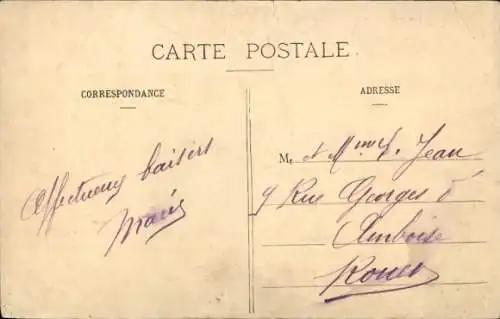 CARTE POSTALE
CORRESPONDANCE
Affectueux baisers
ADRESSE
M. et Mme Jean
9 Rue Georges d'
Amboise
Rouen